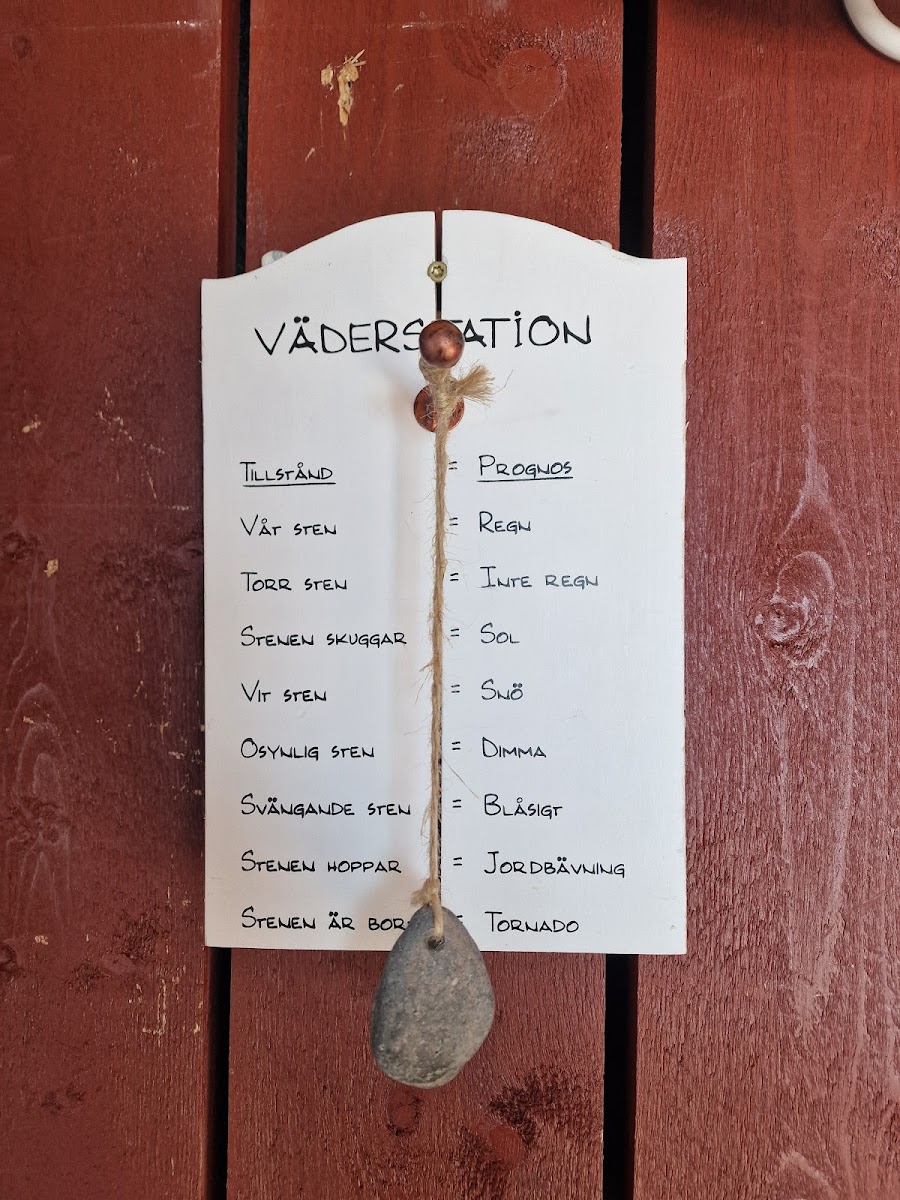 VÄDERSTATION
TILLSTÅND = PROGNOS
VÅT STEN = REGN
TORR STEN = INTE REGN
STENEN SKUGGAR = SOL
VIT STEN = SNÖ
OSYNLIG STEN = DIMMA
SVÄNGANDE STEN = BLÅSIGT
STENEN HOPPAR = JORDBÄVNING
STENEN ÄR = TORNADO